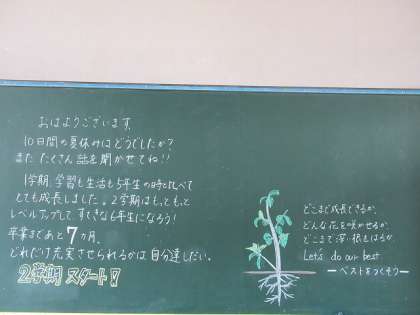 おはようございます。
10日間の夏休みはどうでしたか?
また たくさん 話を聞かせてね!!
1学期、学習も生活も5年生の時と比べて
とても成長しました。2学期はもっともっと
レベルアップして、すてきな6年生になろう!
卒業まであと7ヵ月。
どれだけ充実させられるかは自分達しだい。
2学期 スタート!!
どこまで成長できるか、
どんな花を咲かせるか、
どこまで深い根をはるか
Let's do our best
ーベストをつくそうー